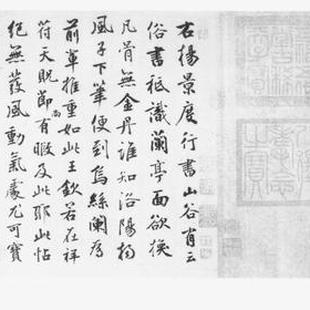 右楊景度行書山谷有云
俗書秪識蘭亭面欲換
凡骨無金丹誰知洛陽楊
風子下筆便到烏絲闌為
前輩推重如此王欽若在祥
符天貺節尚有暇及此耶此帖
絕無發風動氣處尤可寶